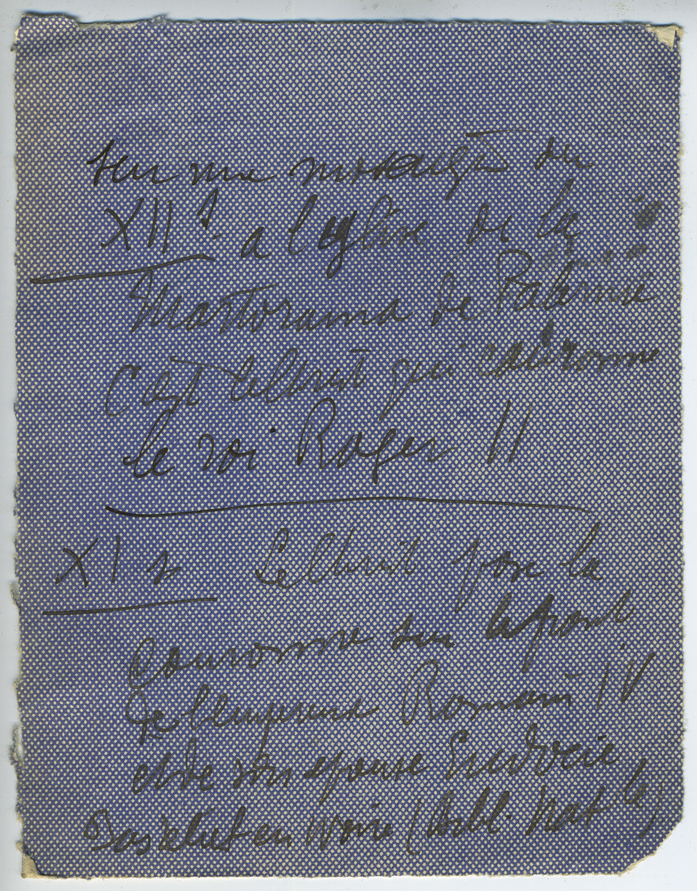 sur une mosaïque du
XII s. a l'église de la
Martorama de Palerme
C'est le Christ qui couronne
le roi Roger II
XI s. Le Christ pose la
couronne sur le front
de l'empereur Romain IV
et de son épouse Eudocie
Bas relief en ivoire (Bibl. Nat le)